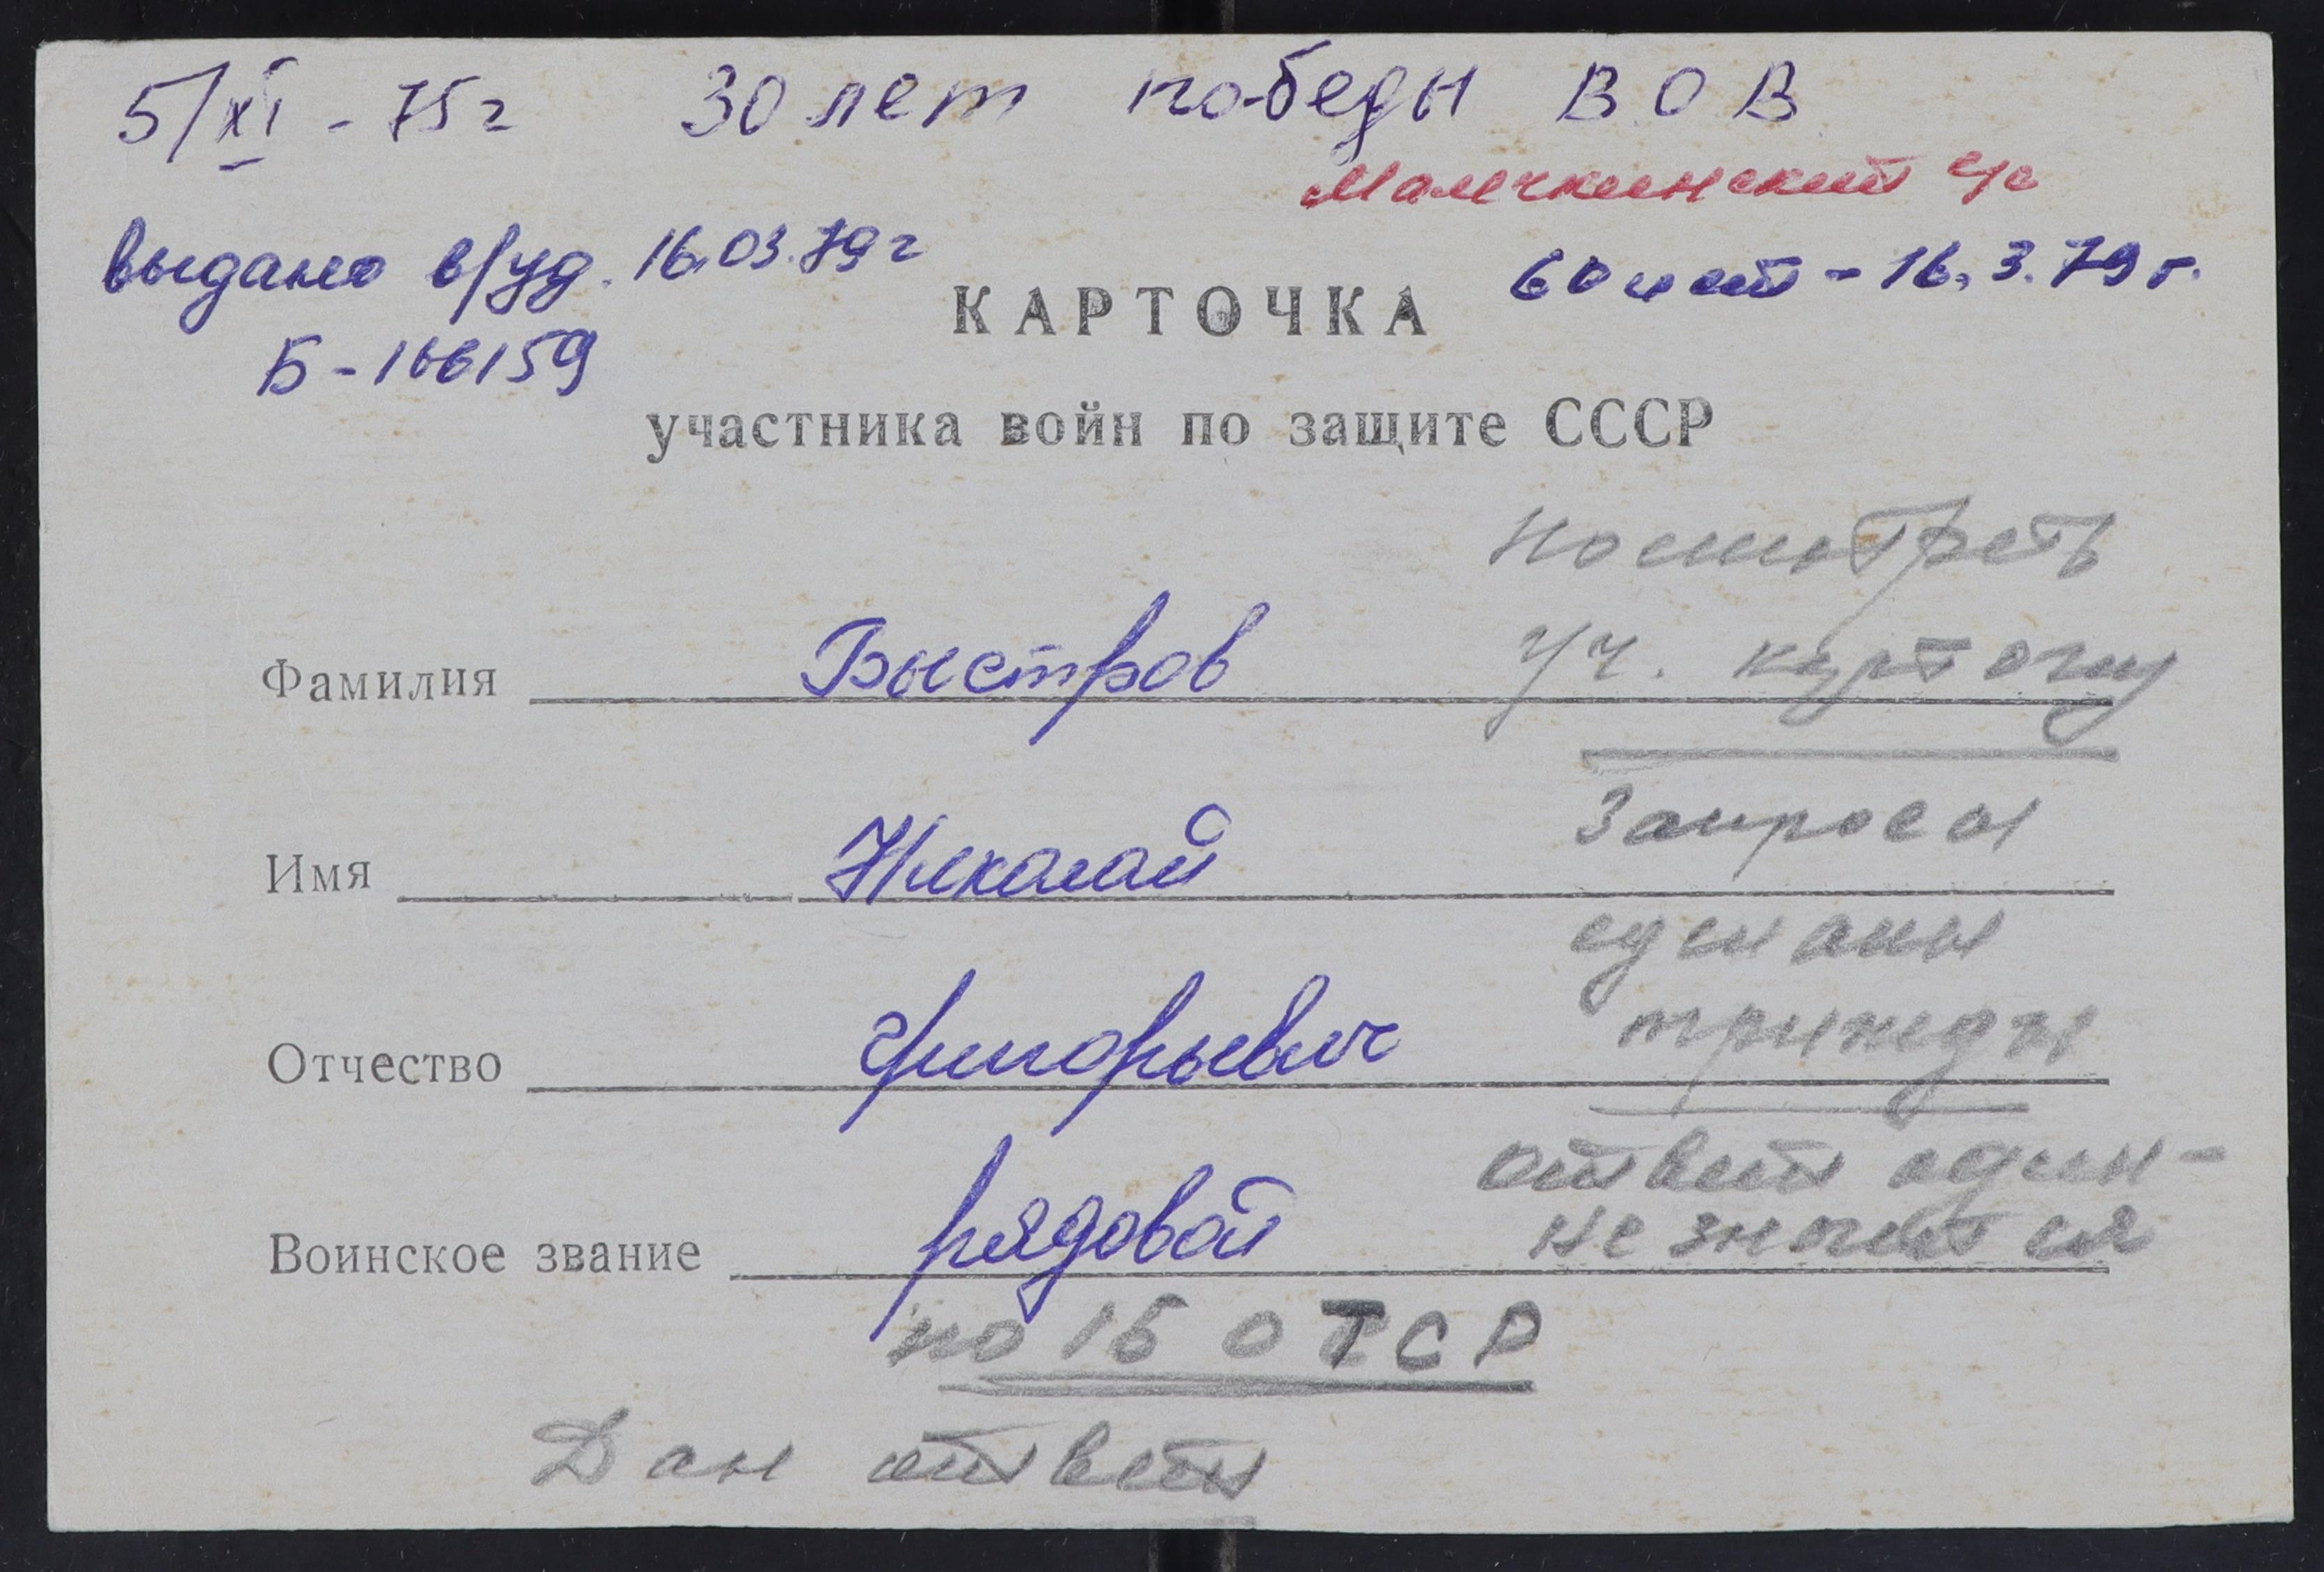 5/XI - 75г 30 лет победы В.О.В.
Мамчкинский ч/с
выдано в/уд. 16.03.79г
60 лет - 16.3.79г.
КАРТОЧКА
Б-166159
участника войн по защите СССР
посмотреть
Фамилия Быстров
уч. карточку
Запросы
Имя Николай
сделаны
трижды
Отчество Григорьевич
ответ один -
не значится
Воинское звание рядовой
по 15 ОТСР
Дан ответ